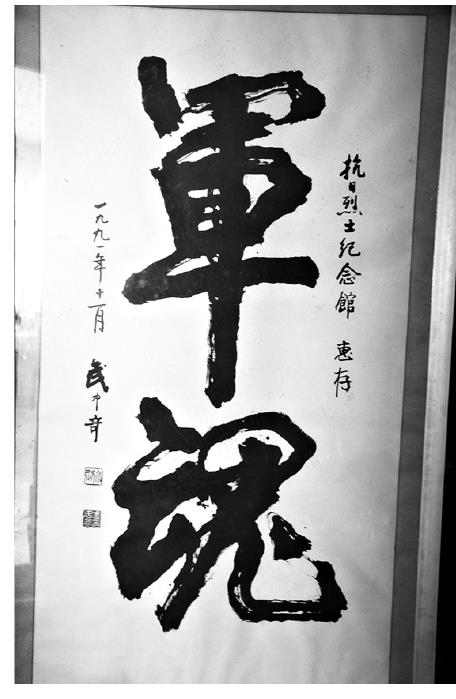 抗日烈士纪念館 惠存
軍魂
一九九一年十一月
武中奇